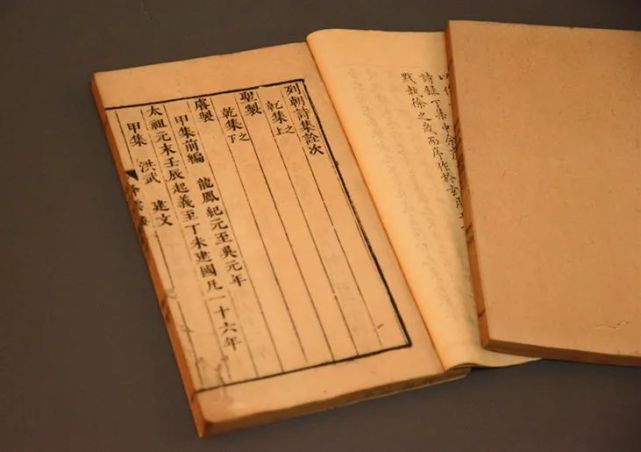 詩錄丁集中
之歲而序作於
列朝詩集詮次
乾集之上
聖製
乾集之下
睿製
甲集前編 龍鳳紀元至吳元年
太祖元末壬辰起義至丁未建國凡一十六年
甲集 洪武 建文